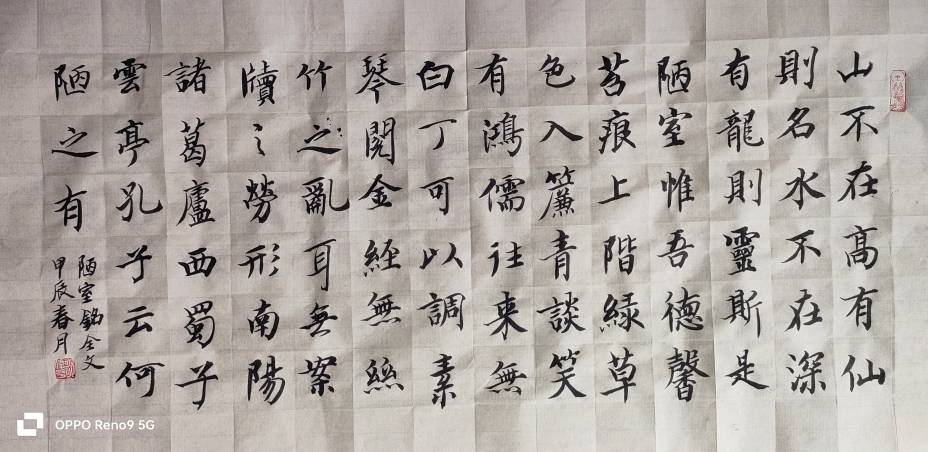 山不在高有仙
則名水不在深
有龍則靈斯是
陋室惟吾德馨
苔痕上階緑草
色入簾青談笑
有鴻儒往来無
白丁可以調素
琴閱金經無絲
竹之亂耳無案
牘之勞形南陽
諸葛廬西蜀子
雲亭孔子云何
陋之有
陋室銘全文
甲辰春月
OPPO Reno9 5G